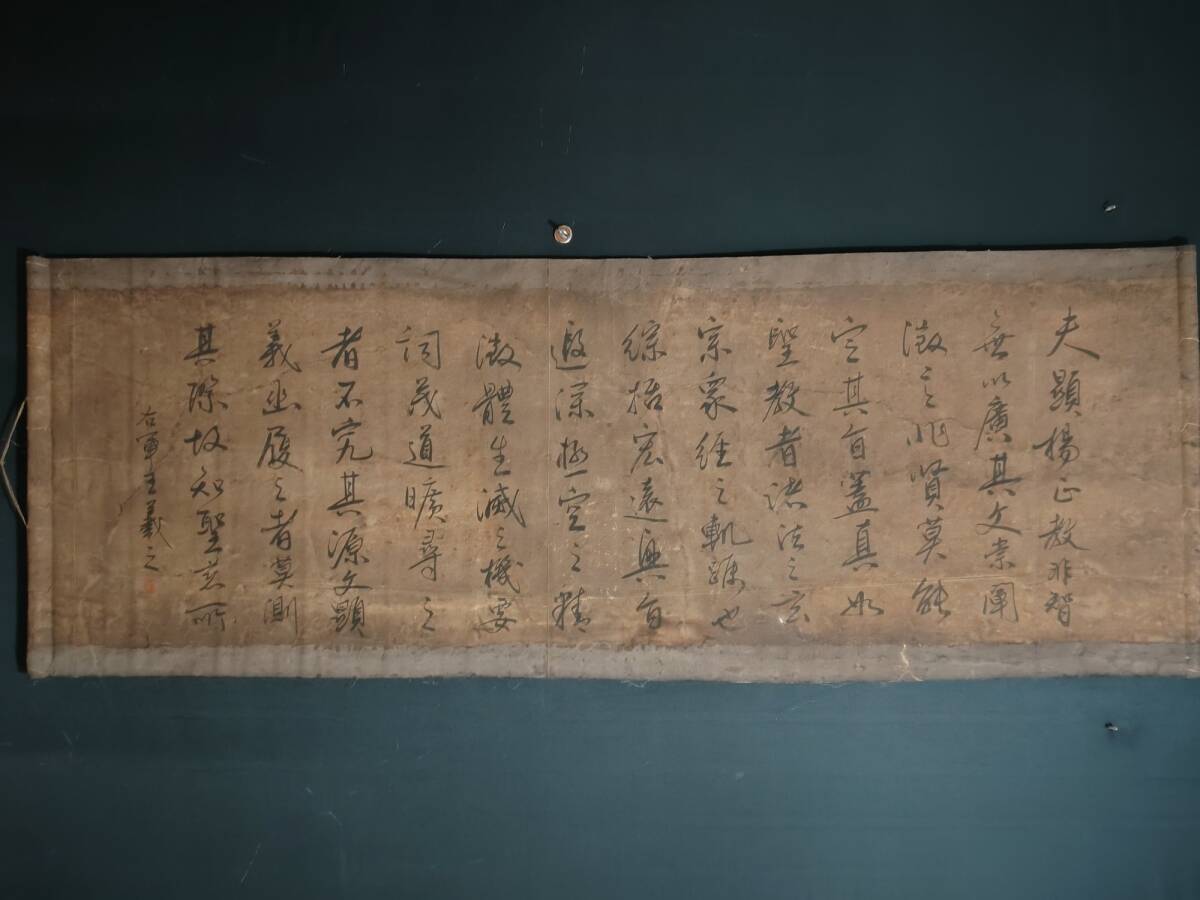 夫顯揚正教非智
無以廣其文崇闡
微言非賢莫能
定其旨蓋真如
聖教者諸法之玄
宗眾經之軌躅也
綜括宏遠奧旨
遐深極空之精
微體生滅之機要
詞茂道曠尋之
者不究其源文顯
義幽履之者莫測
其際故知聖慈所
右軍王羲之